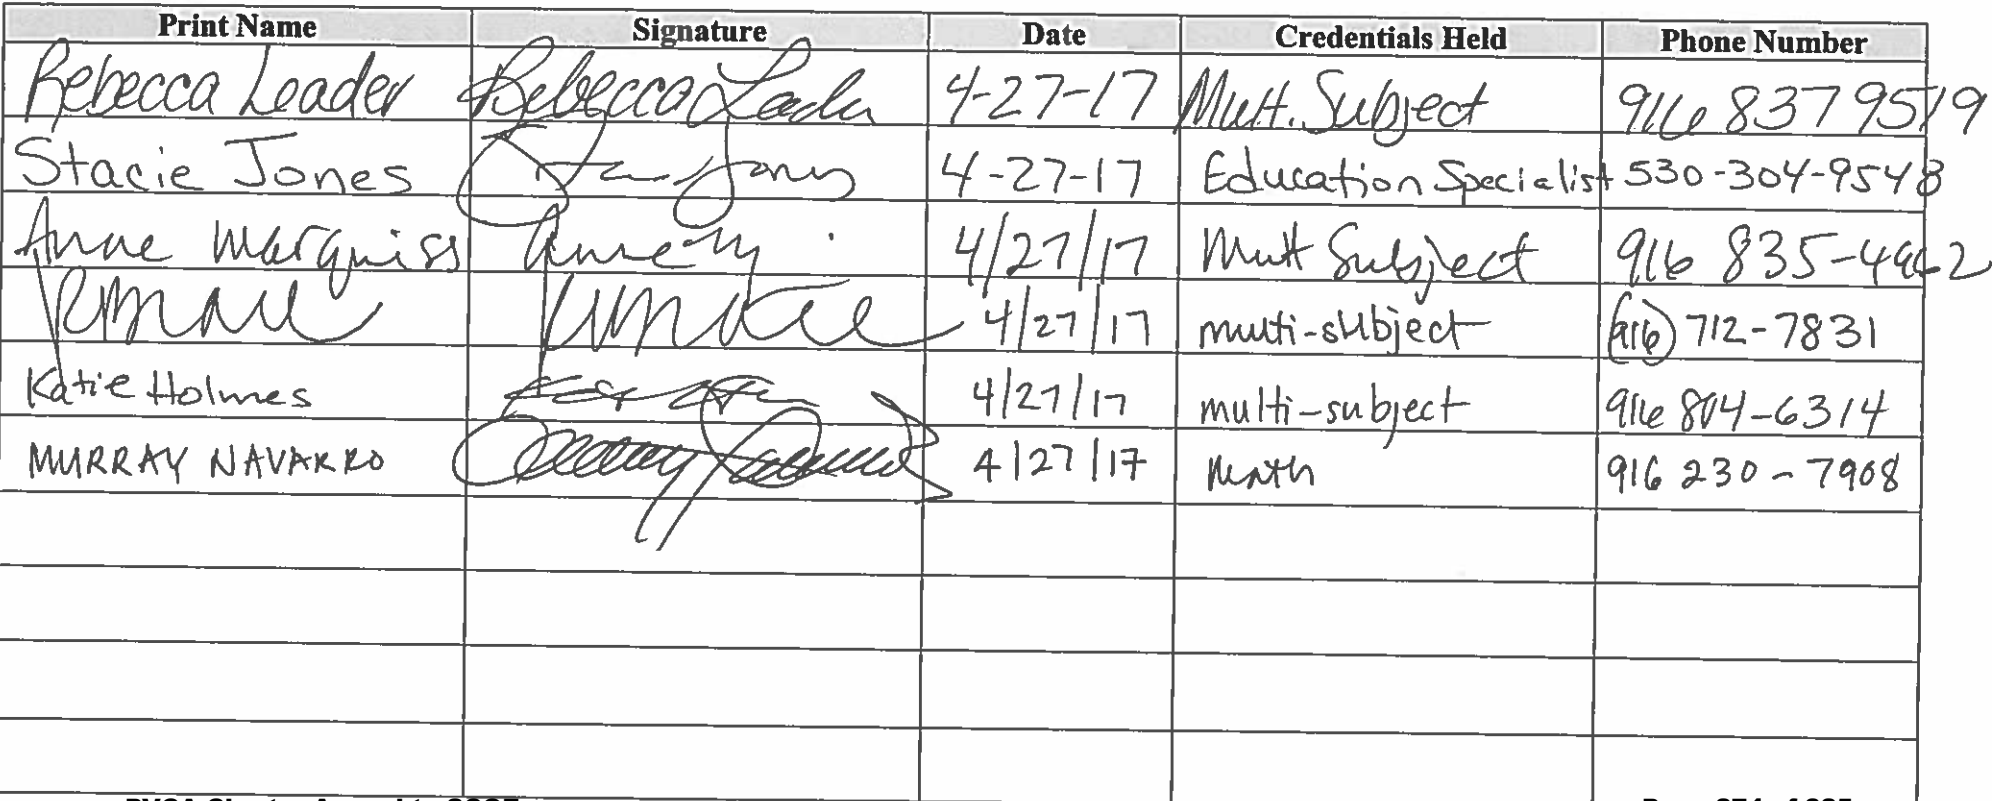 Print Name Signature Date Credentials Held Phone Number
Rebecca Leader Rebecca Leader 4-27-17 Mult. Subject 916 837 9519
Stacie Jones Jones 4-27-17 Education Specialist 530-304-9548
Anne Marquiss Anne M 4/27/17 Mult Subject 916 835-4962
4/27/17 multi-subject (916) 712-7831
Katie Holmes 4/27/17 multi-subject 916 804-6314
MURRAY NAVARRO Murray Navarro 4/27/17 Math 916 230-7908